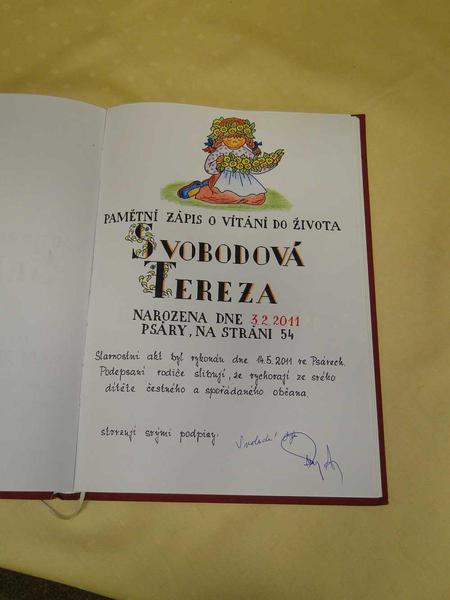 PAMĚTNÍ ZÁPIS O VÍTÁNÍ DO ŽIVOTA
SVOBODOVÁ
TEREZA
NAROZENA DNE 3.2.2011
PSÁRY, NA STRÁNI 54
Slavnostní akt byl vykonán dne 14.5.2011 ve Psárech.
Podepsaní rodiče slibují, že vychovají ze svého
dítěte čestného a spořádaného občana.
stvrzují svými podpisy: